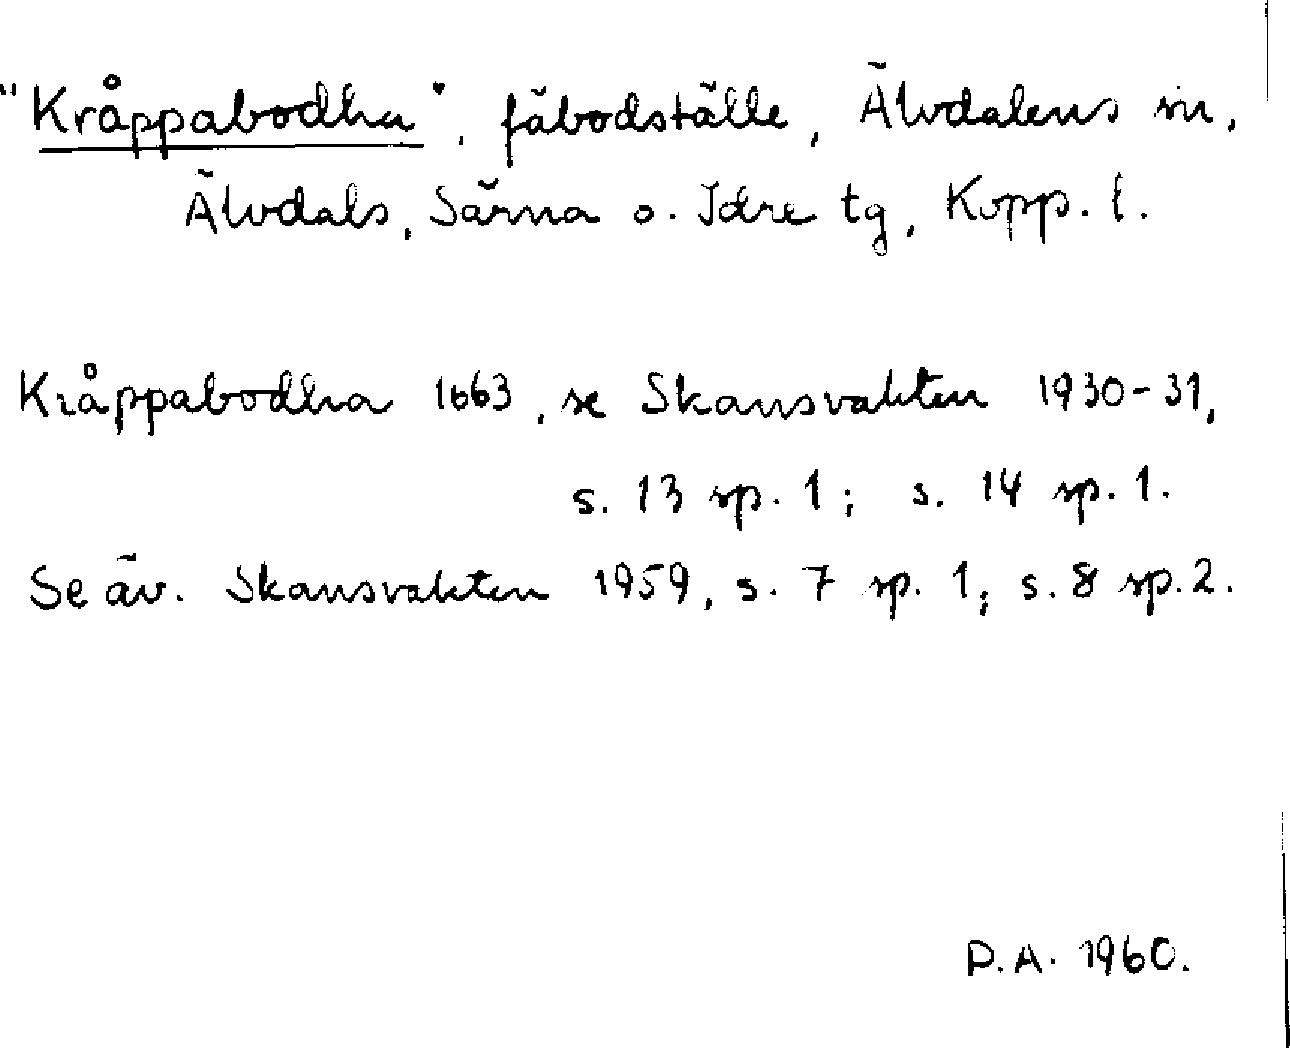 "Kråppabodha", fäbodställe, Älvdalens sn,
Älvdals, Särna o. Idre tg, Kopp. l.
Kråppabodha 1663, se Skansvakten 1930-31,
s. 13 sp. 1; s. 14 sp. 1.
Se äv. Skansvakten 1959, s. 7 sp. 1; s. 8 sp. 2.
D.A. 1960.